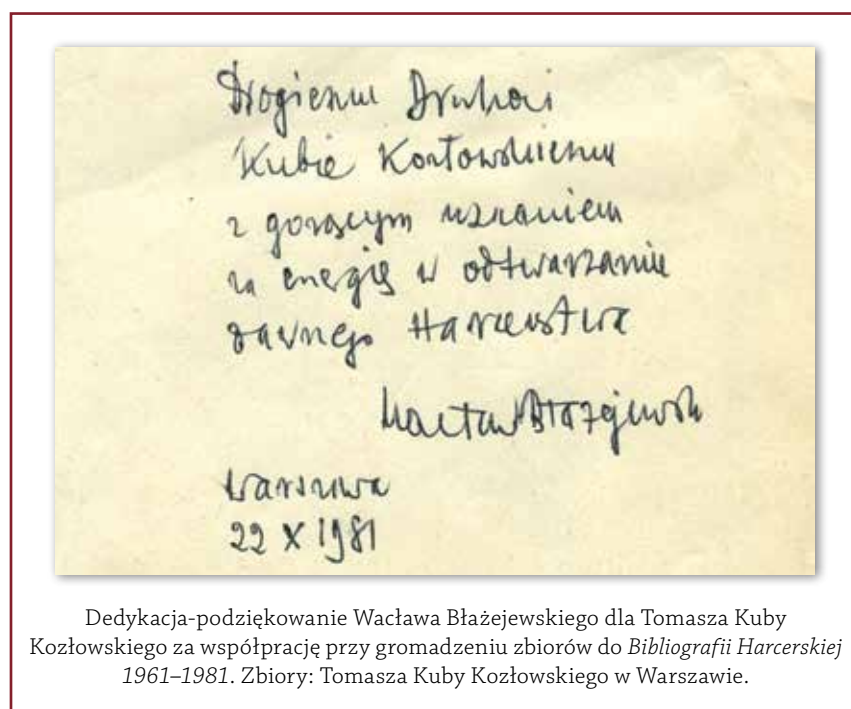 Drogiemu Druhowi
Kubie Kozłowskiemu
z gorącym uznaniem
za energię w odtwarzaniu
dawnego Harcerstwa
Wacław Błażejewski
Warszawa
22 X 1981
Dedykacja-podziękowanie Wacława Błażejewskiego dla Tomasza Kuby
Kozłowskiego za współpracę przy gromadzeniu zbiorów do Bibliografii Harcerskiej
1961–1981. Zbiory: Tomasza Kuby Kozłowskiego w Warszawie.